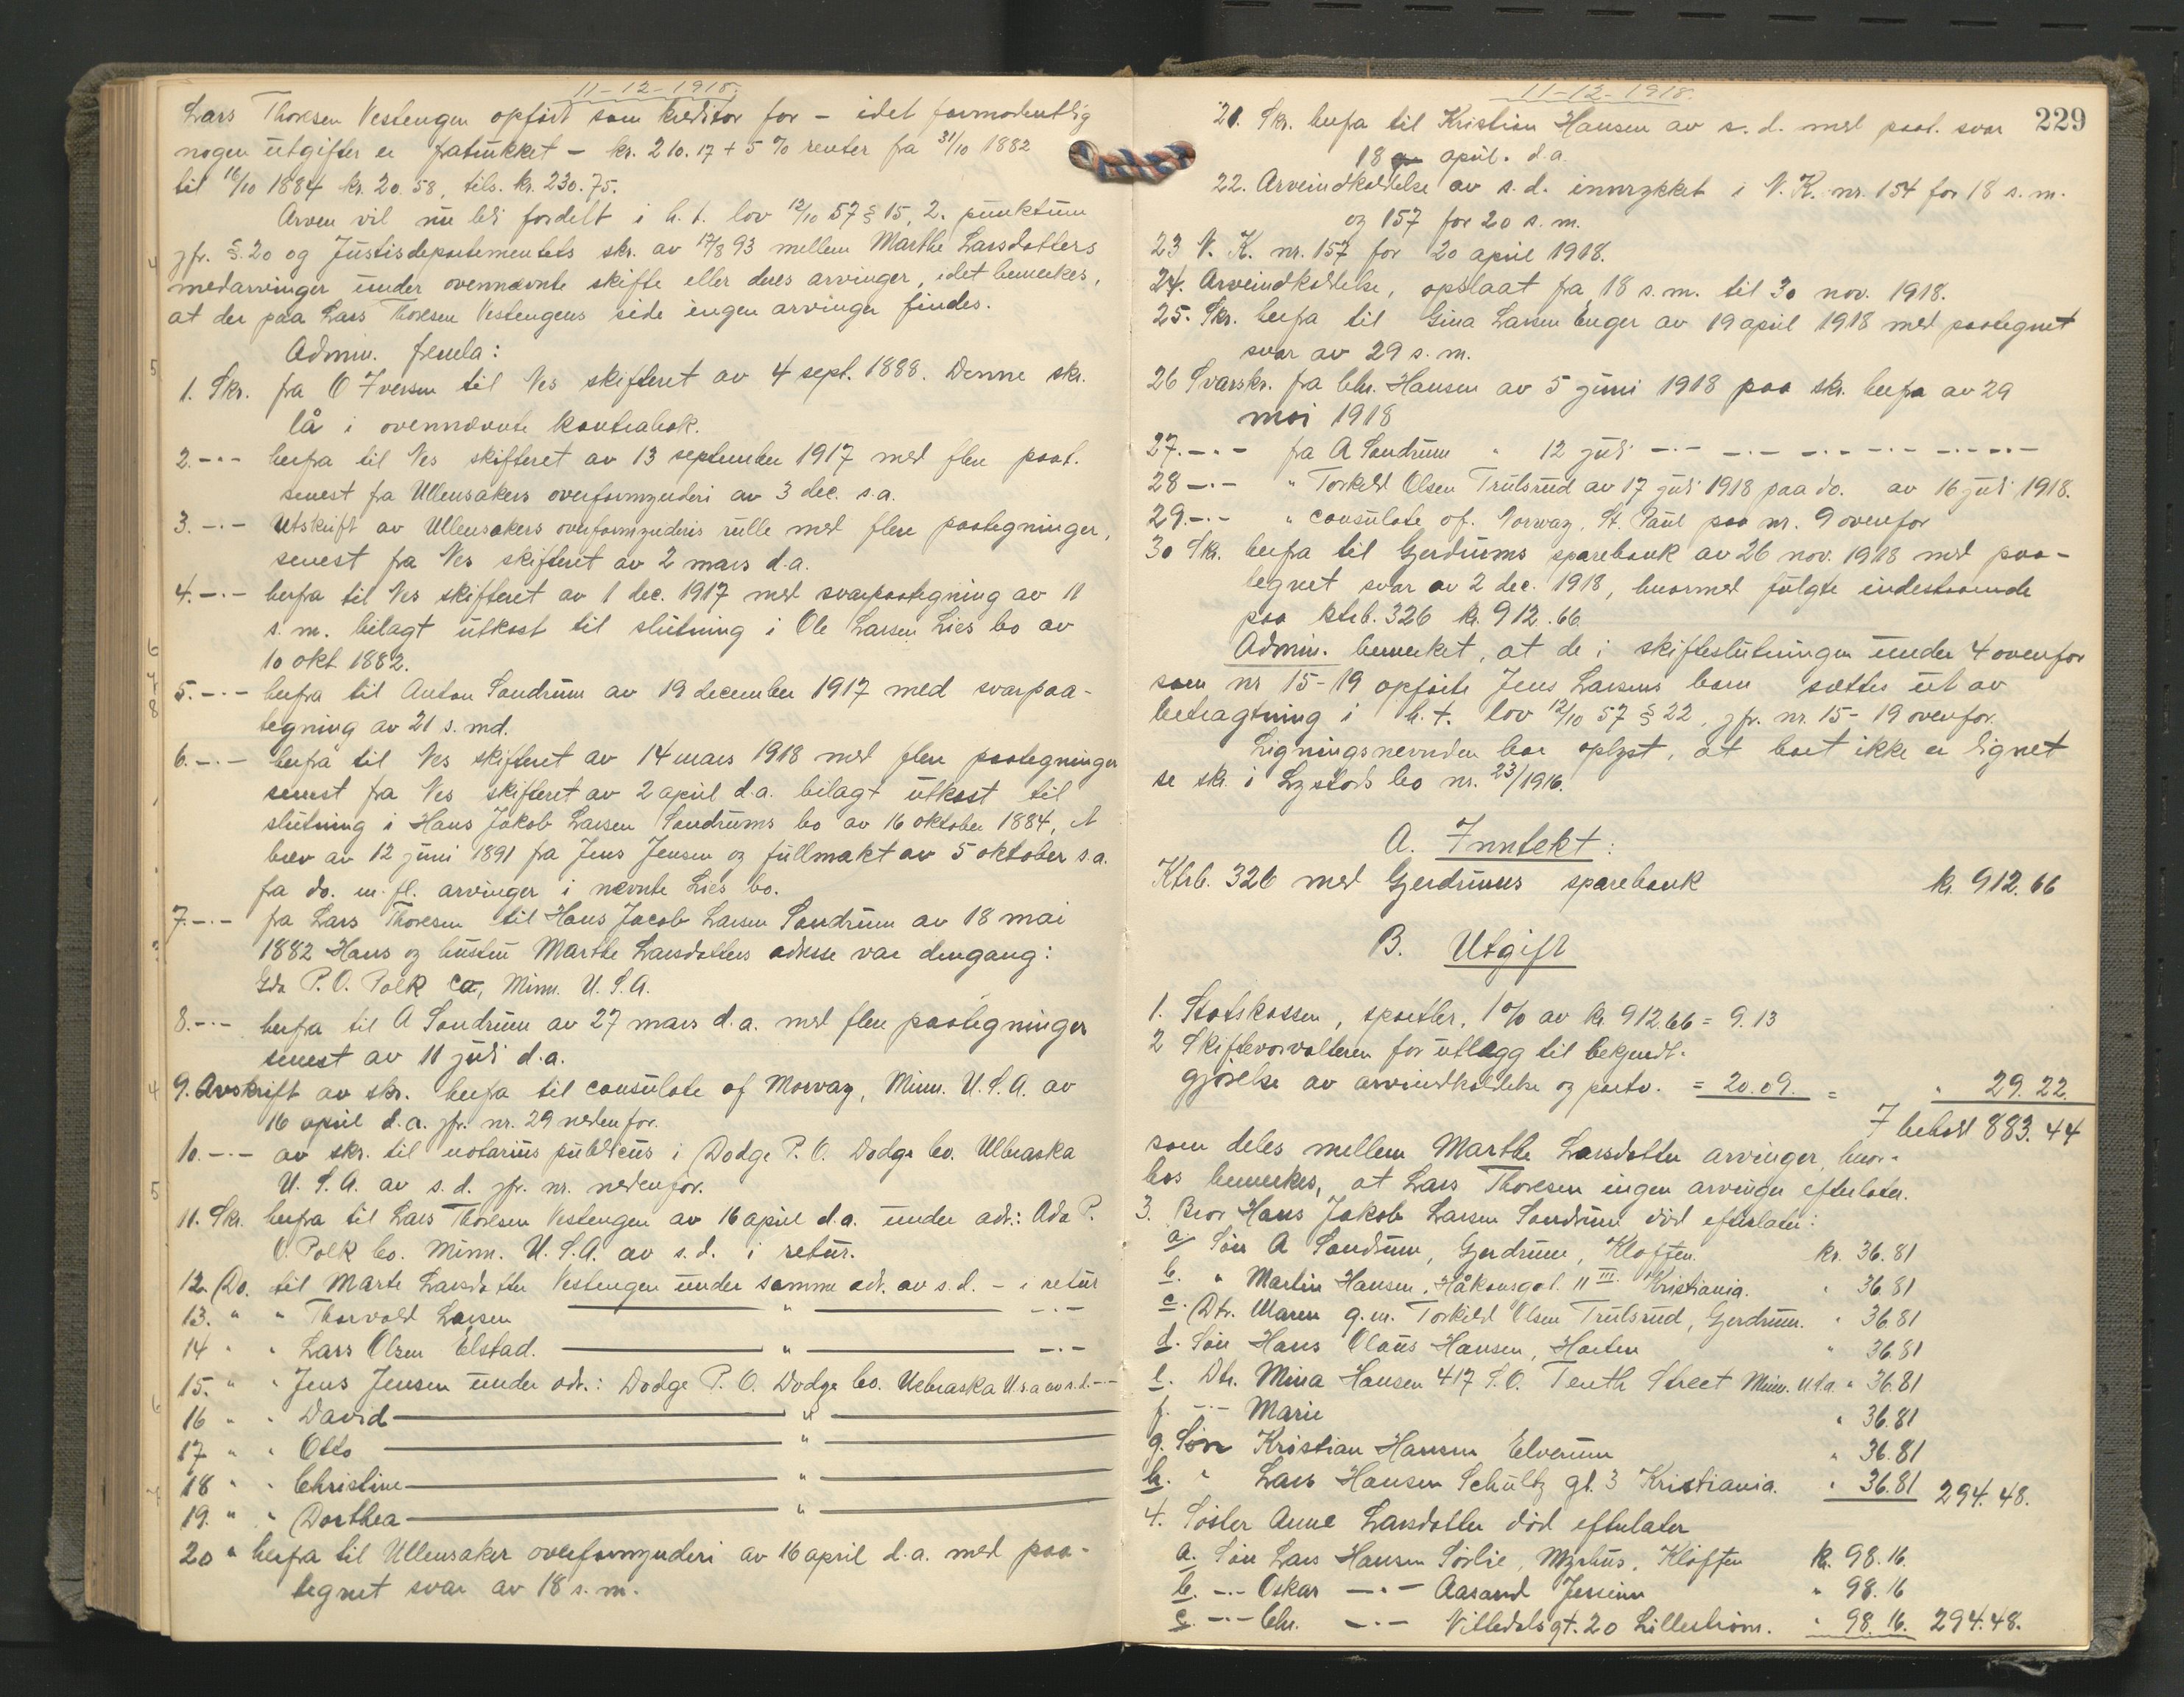 11-12-1918.
Lars Thoresen Vestengen opført som kreditor for - idet formodentlig
nogen utgifter er fratrukket - kr. 210.17 + 5 % renter fra 31/10 1882
til 16/10 1884 kr. 20.58, tils. kr. 230.75.
Arven vil nu bli fordelt i h. t. lov 12/10 57 § 15, 2. punktum
jfr. §.20 og Justisdepartementets skr. av 17/8 93 mellem Marthe Larsdatters
medarvinger under ovennævnte skifte eller deres arvinger, idet bemerkes,
at der paa Lars Thoresen Vestengens side ingen arvinger findes.
Admin. fremla:
1. Skr. fra O Iversen til Nes skifteret av 4 sept. 1888. Denne skr.
lå i ovennævnte kontrabok.
2. -"- herfra til Nes skifteret av 13 september 1917 med flere paat.
senest fra Ullensakers overformynderi av 3 dec. s.a.
3. -"- Utskrift av Ullensakers overformynderis rulle med flere paategninger,
senest fra Nes skifteret av 2 mars d.a.
4. -"- herfra til Nes skifteret av 1 dec. 1917 med svarpaategning av 11
s. m. bilagt utkast til slutning i Ole Larsen Lies bo av
10 okt 1882.
5. -"- herfra til Anton Sandrum av 19 december 1917 med svarpaa-
tegning av 21 s. md.
6. -"- herfra til Nes skifteret av 14 mars 1918 med flere paategninger
senest fra Nes skifteret av 2 april d.a. bilagt utkast til
slutning i Hans Jakob Larsen Sandrums bo av 16 oktober 1884, et
brev av 12 juni 1891 fra Jens Jensen og fullmakt av 5 oktober s.a.
fra do. m. fl. arvinger i nevnte Lies bo.
7. -"- fra Lars Thoresen til Hans Jacob Larsen Sandrum av 18 mai
1882 Hans og hustru Marthe Larsdatters adresse var dengang:
P. O. Polk Co, Minn. U. S. A.
8. -"- herfra til A Sandrum av 27 mars d.a. med flere paategninger
senest av 11 juli d.a.
9. Avskrift av skr. herfra til consulate of Norway, Minn. U. S. A. av
16 april d.a. jfr. nr. 29 nedenfor.
10. -"- av skr. til notarius publicus i Dodge P. O. Dodge Co. Nebraska
U. S. A. av s. d. jfr. nr. nedenfor.
11. Skr. herfra til Lars Thoresen Vestengen av 16 april d.a. under adr.: Ada P.
O. Polk Co. Minn. U. S. A. av s. d. i retur.
12. Do. til Marte Larsdatter Vestengen under samme adr. av s. d. - i retur
13. " " Thorvald Larsen " -"-
14 " " Lars Olsen Elstad. " -"-
15. " " Jens Jensen under adr.: Dodge P. O. Dodge Co. Nebraska Usa av s. d. -"-
16 " " David "
17 " " Otto "
18 " " Christine "
19. " " Dorthea "
20 " herfra til Ullensaker overformynderi av 16 april d.a. med paa-
tegnet svar av 18 s. m.
11-12-1918.
229
21. Skr. herfra til Kristian Hansen av s. d. med paat. svar
18 april. d.a.
22. Arveindkaldelse av s. d. innrykket i N. K. nr. 154 for 18 s. m.
og 157 for 20 s. m.
23 N. K. nr. 157 for 20 april 1918.
24. Arveindkaldelse, opslaat fra 18 s. m. til 30 nov. 1918.
25. Skr. herfra til Gina Larsen Enger av 19 april 1918 med paategnet
svar av 29 s. m.
26 Svarskr. fra Chr. Hansen av 5 juni 1918 paa skr. herfra av 29
mai 1918
27. -"- fra A Sandrum " 12 juli -"- -"- -"- -"- -"-
28 -"- " Torkild Olsen Trulsrud av 17 juli 1918 paa do. av 16 juli 1918.
29. -"- " consulate of. Norway. St. Paul paa nr. 9 ovenfor
30 Skr. herfra til Gjerdrums sparebank av 26 nov. 1918 med paa-
tegnet svar av 2 dec. 1918, hvormed fulgte indestaaende
paa ktrb. 326 kr. 912.66.
Admin. bemerket, at de i skifteslutningen under 4 ovenfor
som nr 15-19 opførte Jens Larsens barn sættes ut av
betragtning i h. t. lov 12/10 57 § 22, jfr. nr. 15-19 ovenfor.
Ligningsnevnden har oplyst, at boet ikke er lignet
se skr. i Lystads bo nr. 23/1916.
A. Inntekt:
Ktrb. 326 med Gjerdrums sparebank kr. 912.66
B. Utgift
1. Statskassen, sportler, 1 % av kr. 912.66 = 9.13
2 Skifteforvalteren for utlægg til bekjendt-
gjørelse av arvindkaldelse og porto. = 20.09. = " 29.22.
I behold 883.44
som deles mellem Marthe Larsdatter arvinger, hvor-
hos bemerkes, at Lars Thoresen ingen arvinger efterlater.
3. Bror Hans Jakob Larsen Sandrum død efterlater:
a. Søn A Sandrum, Gjerdrum, Kløften. kr. 36.81
b. " Martin Hansen, Håkonsgat. 11 III. Kristiania. " 36.81
c. Dtr. Maren g. m. Torkild Olsen Trulsrud, Gjerdrum. " 36.81
d. Søn Hans Olaus Hansen, Horten " 36.81
e. Dtr. Mina Hansen 417 S. O. Tenth Street Minn. Usa. " 36.81
f. -"- Marie " 36.81
g. Søn Kristian Hansen Elverum " 36.81
h. " Lars Hansen Schultz gt. 3 Kristiania. " 36.81 294.48.
4. Søster Anne Larsdatter død efterlater
a. Søn Lars Hansen Sørlie, Myrhus, Kløften kr. 98.16.
b. -"- Oskar -"- Aasand Jessheim " 98.16
c. -"- Chr. -"- Nittedalsgt. 20 Lillestrøm. " 98.16. 294.48.